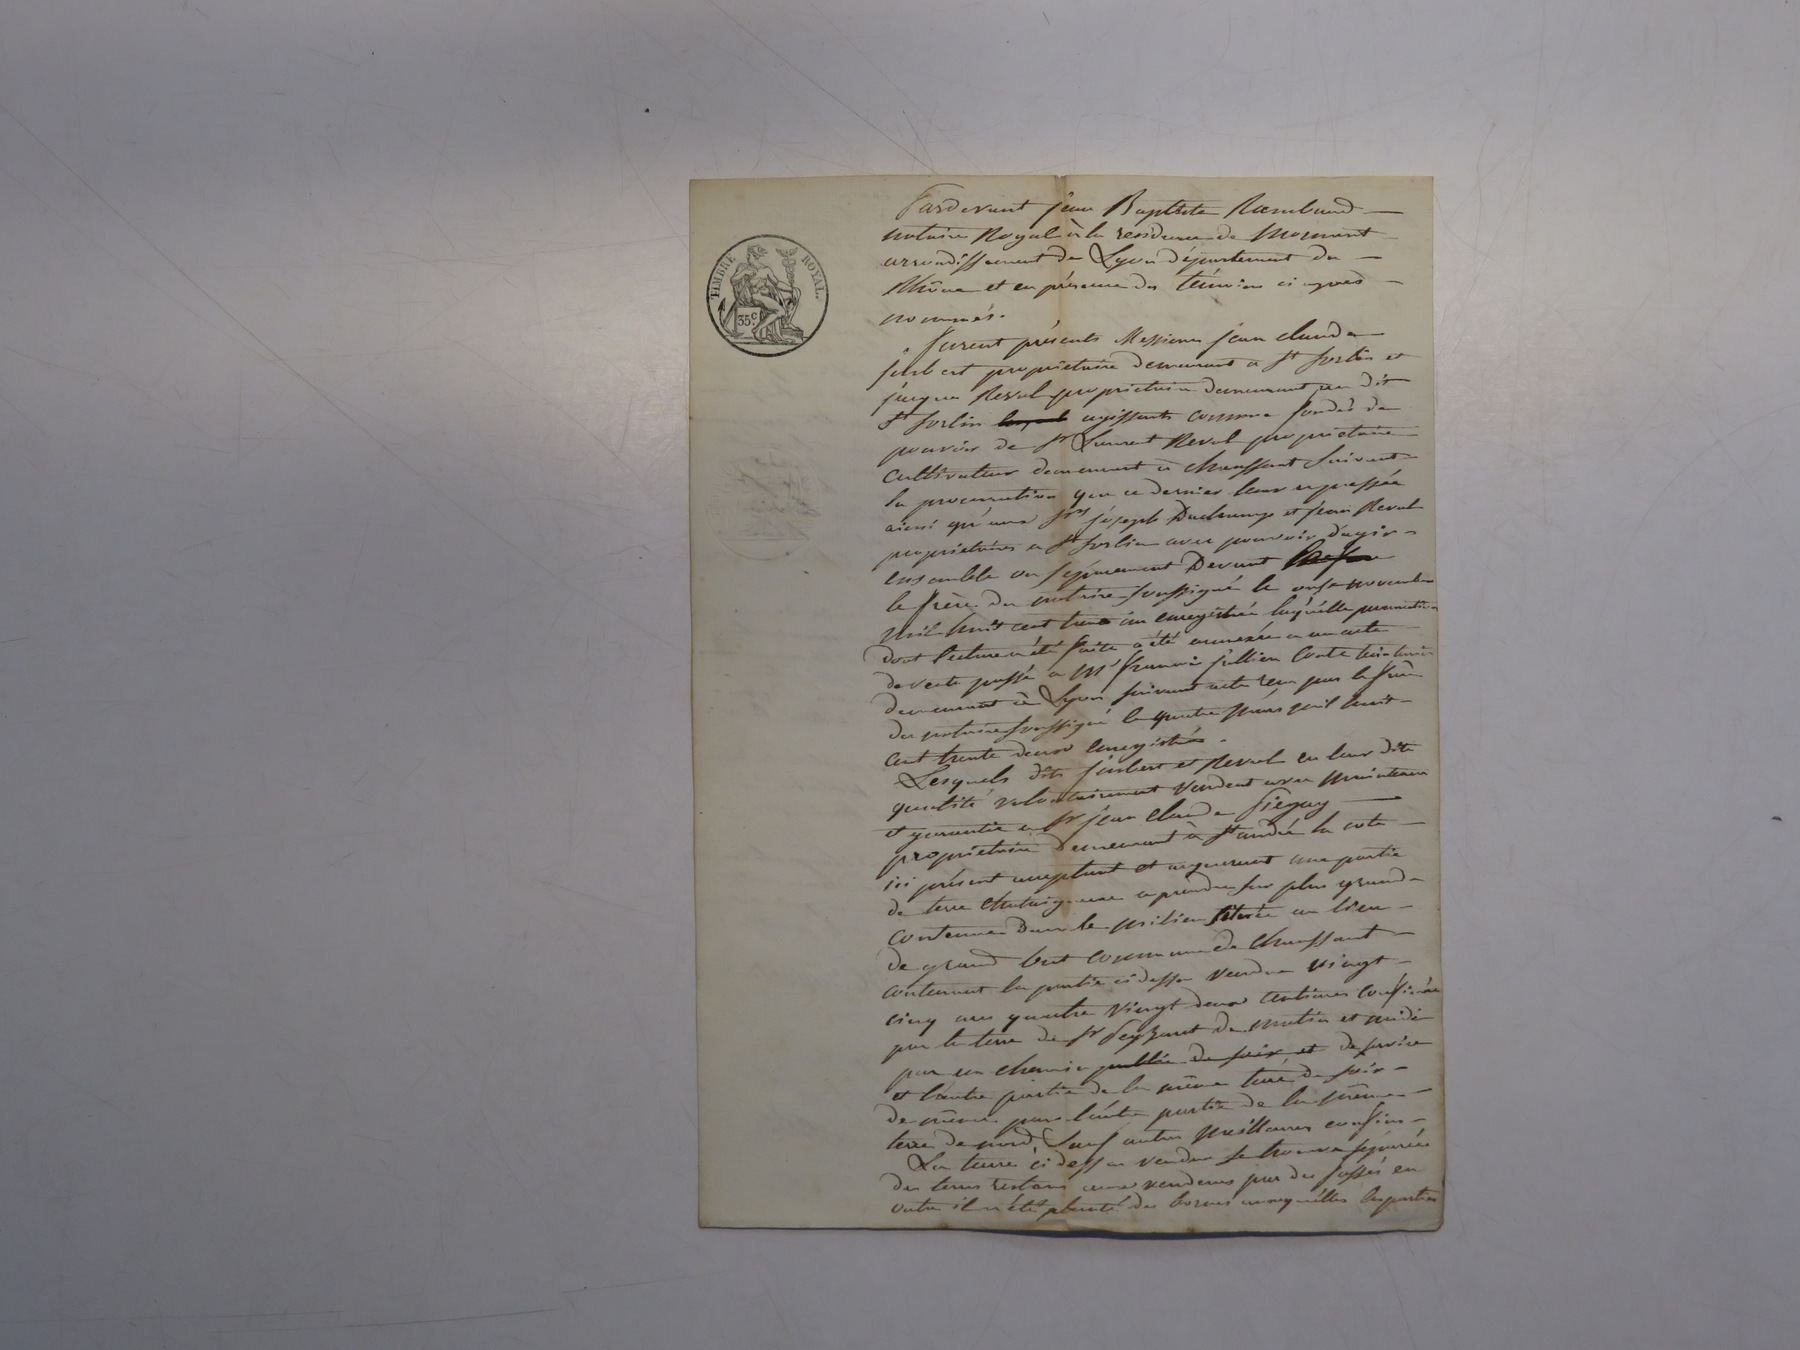 TIMBRE ROYAL.
35.c
Pardevant jean Baptiste Rambaud
notaire Royal à la residence de Mornant
arrondissement de Lyon département du
Rhône et en présence des témoins ci après
nommés.
furent présents Messieurs jean claude
propriétaire demeurant a St Sorlin et
jacque Reval propriétaire demeurant au dit
St Sorlin agissants comme fondés de
pouvoir de Sr Laurent Reval propriétaire
cultivateur demeurant à chaussant suivant
la procuration que ce dernier leur a passée
ainsi qu'aux Srs joseph Duchamp et jean Reval
propriétaires a St Sorlin avec pouvoir d'agir
ensemble ou séparément Devant
le frère du notaire soussigné le onze novembre
mil huit cent trente un enregistrée laquelle procuration
dont lecture a été faite a été annexée a un acte
de vente passé a Mr françois jullien Conte
demeurant à Lyon suivant acte reçu par le frère
du notaire soussigné le quatre mars mil huit
cent trente deux enregistré.
Lesquels dits et Reval en leur dite
qualité volontairement vendent avec maintenue
et garantie a Sr jean claude
propriétaire demeurant à St andré la cote
ici présent acceptant et acquerant une partie
de terre a prendre sur plus grande
contenue dans le milieu située au lieu
de grand commune de chaussant
contenant la partie ci dessus vendue vingt
cinq ares quatre vingt deux centiares confinée
par la terre de Sr du matin et midi
par un chemin de soir et de service
et l'autre partie de la même terre de soir
de même par l'autre partie de la même
terre de nord, sauf autres meilleures confins
La terre ci dessus vendue se trouve séparée
des terres restans aux vendeurs par des fossés en
outre il a été planté des bornes auxquelles les parties